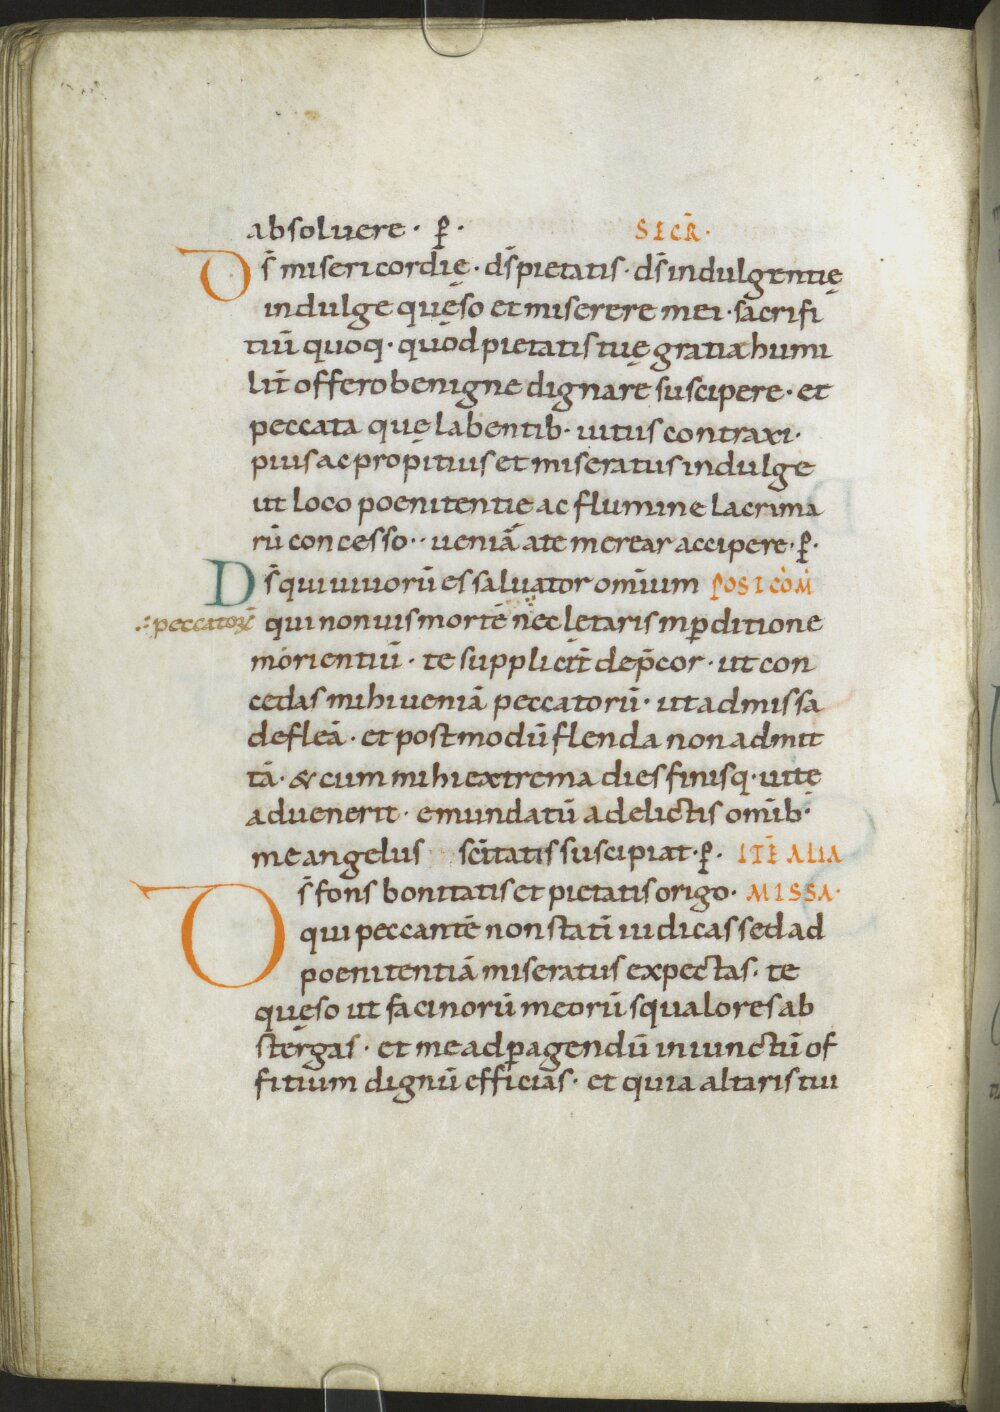 absoluere · p̄ · SECR̄ ·
Ds̄ misericordię · ds̄ pietatis · ds̄ indulgentię
indulge quęso et miserere mei · sacrifi
tiū quoq · quod pietatis tuę gratia humi
lit̄ offero benigne dignare suscipere · et
peccata quę labentib · uitiis contraxi ·
pius ac propitius et miseratus indulge
ut loco poenitentię ac flumine lacrima
rū concesso · ueniā a te merear accipere · p̄ ·
Ds̄ qui uiuorū es saluator omnium POSTCOM̄
∴ peccatorꝝ qui non uis mortē nec lętaris in perditione
morientiū · te supplicit̄ dep̄cor · ut con
cedas mihi ueniā peccatorū · ut admissa
defleā · et postmodū flenda non admit
tā · & cum mihi extrema dies finisq · uitę
aduenerit · emundatū a delictis om̄ib ·
me angelus sc̄itatis suscipiat · p̄ · ITĒ ALIA
Ds̄ fons bonitatis et pietatis origo · MISSA ·
qui peccantē non statī iudicas sed ad
poenitentiā miseratus expectas · te
quęso ut facinorū meorū squalores ab
stergas · et me ad ꝑagendū iniunctū of
fitium dignū efficias · et quia altaris tui